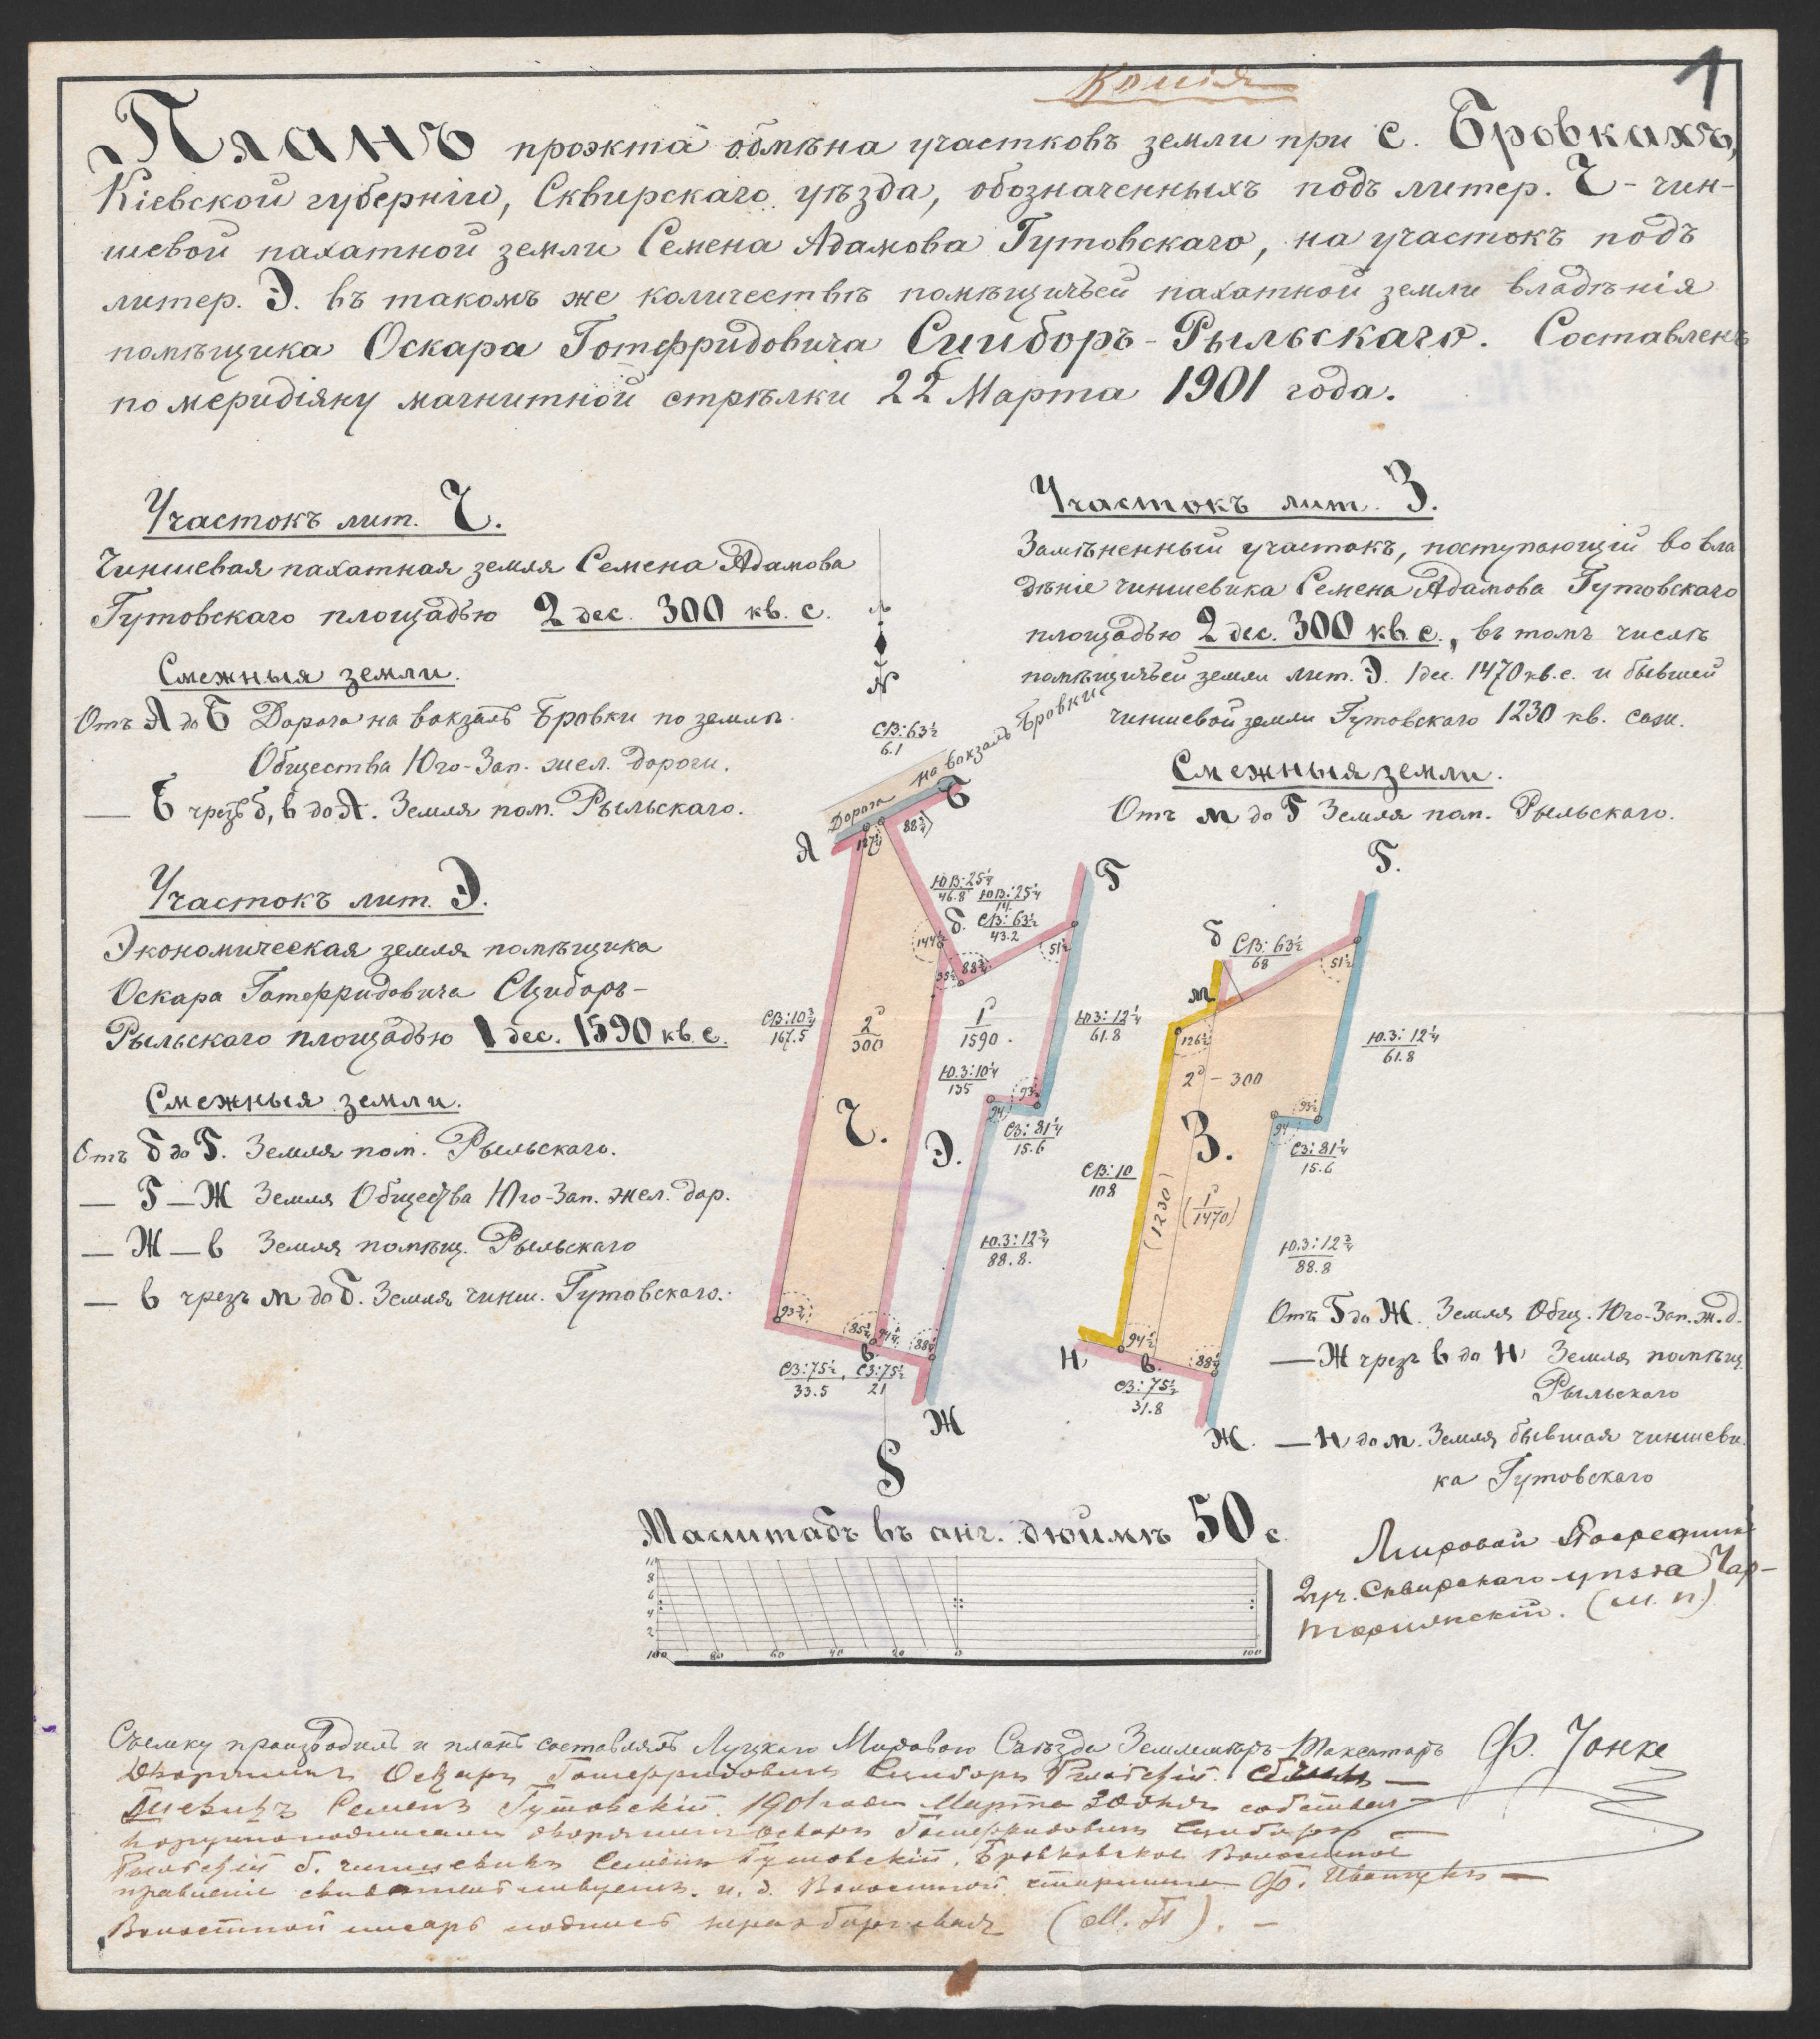 Копія
1
Планъ проэкта обмѣна участковъ земли при с. Бровкахъ,
Кіевской губерніи, Сквирскаго уѣзда, обозначенныхъ подъ литер. Ч - чин-
шевой пахатной земли Семена Адамова Гутовскаго, на участокъ подъ
литер. Э. въ такомъ же количествѣ помѣщичьей пахатной земли владѣнія
помѣщика Оскара Готфридовича Сциборъ-Рыльскаго. Составленъ
по меридіяну магнитной стрѣлки 22 Марта 1901 года.
Участокъ лит. Ч.
Чиншевая пахатная земля Семена Адамова
Гутовскаго площадью 2 дес. 300 кв. с.
Смежныя земли.
Отъ А до Б Дорога на вокзалъ Бровки по землѣ
Общества Юго-Зап. жел. дороги.
— Б чрезъ б, в до А. Земля пом. Рыльскаго.
Участокъ лит. Э.
Экономическая земля помѣщика
Оскара Готфридовича Сциборъ-
Рыльскаго площадью 1 дес. 1590 кв. с.
Смежныя земли.
Отъ б до Г. Земля пом. Рыльскаго.
— Г — Ж Земля Общества Юго-Зап. жел. дор.
— Ж — в Земля помѣщ. Рыльскаго
— в чрезъ м до б. Земля чинш. Гутовскаго.
Участокъ лит. З.
Замѣненный участокъ, поступающій во вла
дѣніе чиншевика Семена Адамова Гутовскаго
площадью 2 дес. 300 кв. с., въ томъ числѣ
помѣщичьей земли лит. Э. 1 дес. 1470 кв. с. и бывшей
чиншевой земли Гутовскаго 1230 кв. саж.
Смежныя земли.
Отъ м до Г Земля пом. Рыльскаго.
N
СВ: 63½
6.1
Дорога на вокзалъ Бровки
А
Б
127¼
88¾
ЮВ: 25¼
46.8
ЮВ: 25¼
14
б.
СВ: 63½
43.2
Г
144½
35½
88¾
51½
СВ: 10¾
167.5
2д
300
1д
1590.
ЮЗ: 12¼
61.8
Ю.З: 10¼
135
93½
94
СЗ: 81¼
15.6
Ч.
Э.
Ю.З: 12¾
88.8.
93¾
85½
94½
88¼
в.
СЗ: 75½
33.5
СЗ: 75½
21
Ж
S
Г.
б
СВ: 63½
68
51½
м
126½
2д - 300
Ю.З: 12¼
61.8
З.
93½
94
СЗ: 81¼
15.6
СВ: 10
108
(1230)
(1д
1470)
Ю.З: 12¾
88.8
94½
88¼
Н
в.
СЗ: 75½
31.8
Ж.
Отъ Г до Ж. Земля Общ. Юго-Зап. ж. д.
— Ж чрезъ в до Н Земля помѣщ.
Рыльскаго
— Н до м. Земля бывшая чиншеви
ка Гутовскаго
Масштабъ въ анг. дюймѣ 50 с
10
8
6
4
2
100 80 60 40 20 0 100
Мировой Посредникъ
2 уч. Сквирскаго уѣзда Чар-
торижскій. (М. П.)
Съемку производилъ и планъ составлялъ Луцкаго Мироваго Съѣзда Землемѣръ-Таксаторъ Ф. Чонке
Дворянинъ Оскаръ Готфридовичъ Сциборъ Рыльскій.
Семенъ Гутовскій. 1901 года Марта 30 дня собствен-
норучно подписали дворянинъ Оскаръ Готфридовичъ Сциборъ
Рыльскій б. чиншевикъ Семенъ Гутовскій. Бровковское Волостное
правленіе свидѣтельствуетъ. и. д. Волостной старшина Ф.
Волостной писарь подпись неразборчивая (М. П.). —